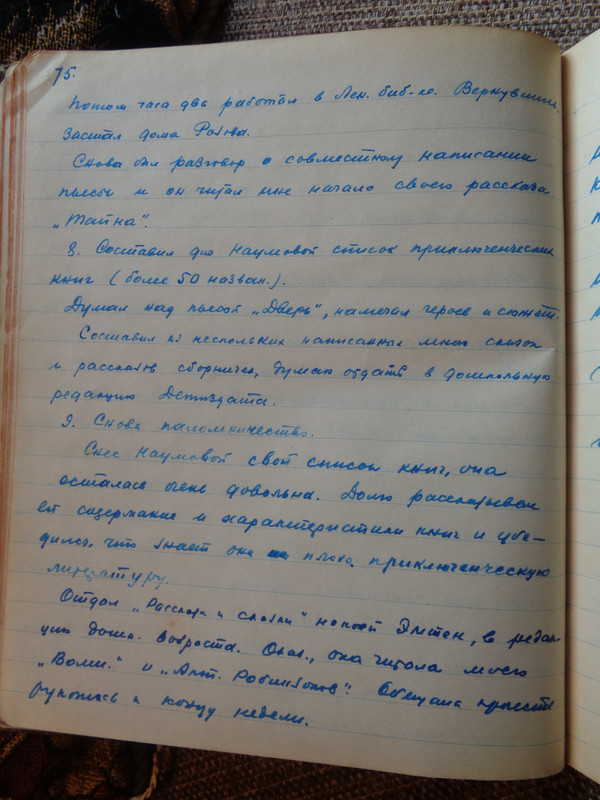 75.
Потом часа два работал в Лен. биб-ке. Вернувшись
застал дома
Снова был разговор о совместном написании
пьесы и он читал мне начало своего рассказа
„Тайна".
8. Составил для Наумовой список приключенческих
книг (более 50 назван.).
Думал над пьесой „Дверь", намечал героев и сюжет.
Составил из нескольких написанных мною сказок
и рассказов сборничек, думаю отдать в дошкольную
редакцию Детиздата.
9. Снова паломничество.
Снес Наумовой свой список книг, она
осталась очень довольна. Долго рассказывал
ей содержание и характеристики книг и убе-
дился, что знает она плохо приключенческую
литературу.
Отдал „Рассказы и сказки" в редак-
цию дошк. возраста. Оказ., она читала моего
„Волш." и „Алт. Робинзонов". Обещала прочесть
рукопись к концу недели.